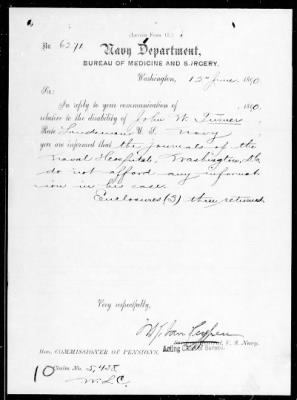 No. 6271
Navy Department,
BUREAU OF MEDICINE AND SURGERY,
Washington, 1890
Sir:
In reply to your communication of , 1890,
relative to the disability of John W. Turner
Rate Landsman, U. S. Navy
you are informed that the journals of the
Naval Hospital, Washington,
do not afford any informat
ion in his case.
Enclosures (3) three returned.
Very respectfully,
U. S. Navy.
Acting Chief of Bureau.
Hon. COMMISSIONER OF PENSIONS.
10 Claim No. 5,428
W.L.C.